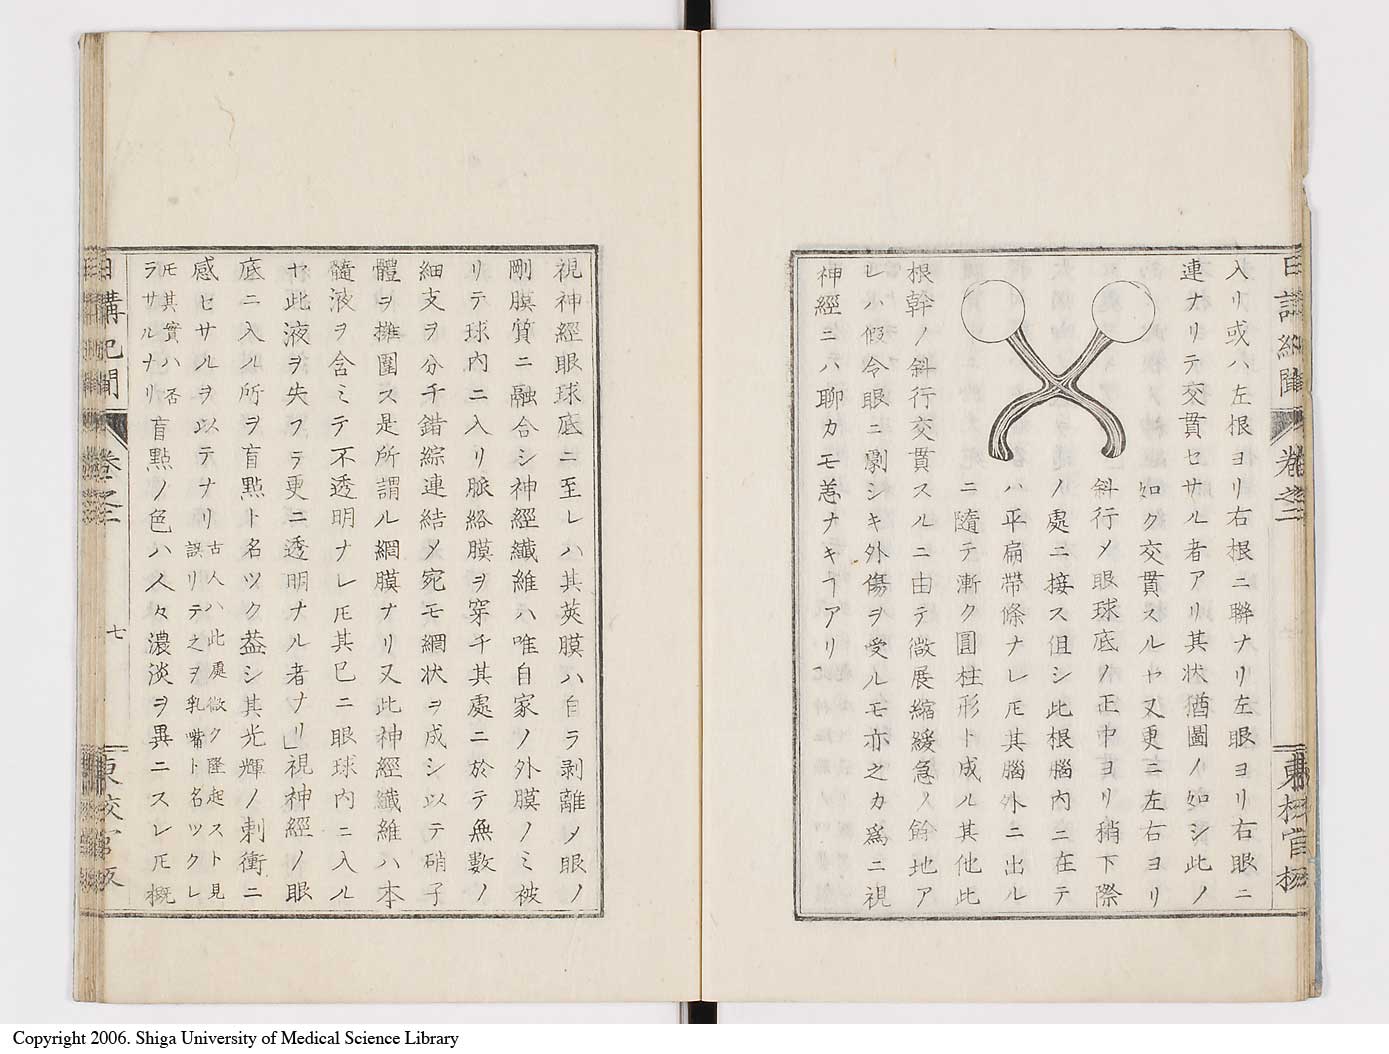 日講紀聞 卷之二 東校官板
入リ或ハ左根ヨリ右根ニ聯ナリ左眼ヨリ右眼ニ
連ナリテ交貫セサル者アリ其状猶圖ノ如シ此ノ
如ク交貫スルヤ又更ニ左右ヨリ
斜行メ眼球底ノ正中ヨリ稍下際
ノ處ニ接ス但シ此根腦内ニ在テ
ハ平扁帶條ナレ𪜈其腦外ニ出ル
ニ隨テ漸ク圓柱形ト成ル其他此
根幹ノ斜行交貫スルニ由テ微展縮緩急ノ餘地ア
レハ假令眼ニ劇シキ外傷ヲ受ルモ亦之カ爲ニ視
神經ニハ聊カモ恙ナキヿアリ
視神經眼球底ニ至レハ其莢膜ハ自ラ剥離メ眼ノ
剛膜質ニ融合シ神經纖維ハ唯自家ノ外膜ノミ被
リテ球内ニ入リ脈絡膜ヲ穿チ其處ニ於テ無數ノ
細支ヲ分チ錯綜連結メ宛モ網状ヲ成シ以テ硝子
體ヲ擁圍ス是所謂ル網膜ナリ又此神經纖維ハ本
髓液ヲ含ミテ不透明ナレ𪜈其已ニ眼球内ニ入ル
ヤ此液ヲ失フラ更ニ透明ナル者ナリ」視神經ノ眼
底ニ入ル所ヲ盲點ト名ツク葢シ其光輝ノ刺衝ニ
感セサルヲ以テナリ古人ハ此處微ク隆起スト見
誤リテ之ヲ乳嘴ト名ツクレ
𪜈其實ハ否
ラサルナリ盲點ノ色ハ人々濃淡ヲ異ニスレ𪜈概
日講紀聞 卷之二 七 東校官板
Copyright 2006. Shiga University of Medical Science Library